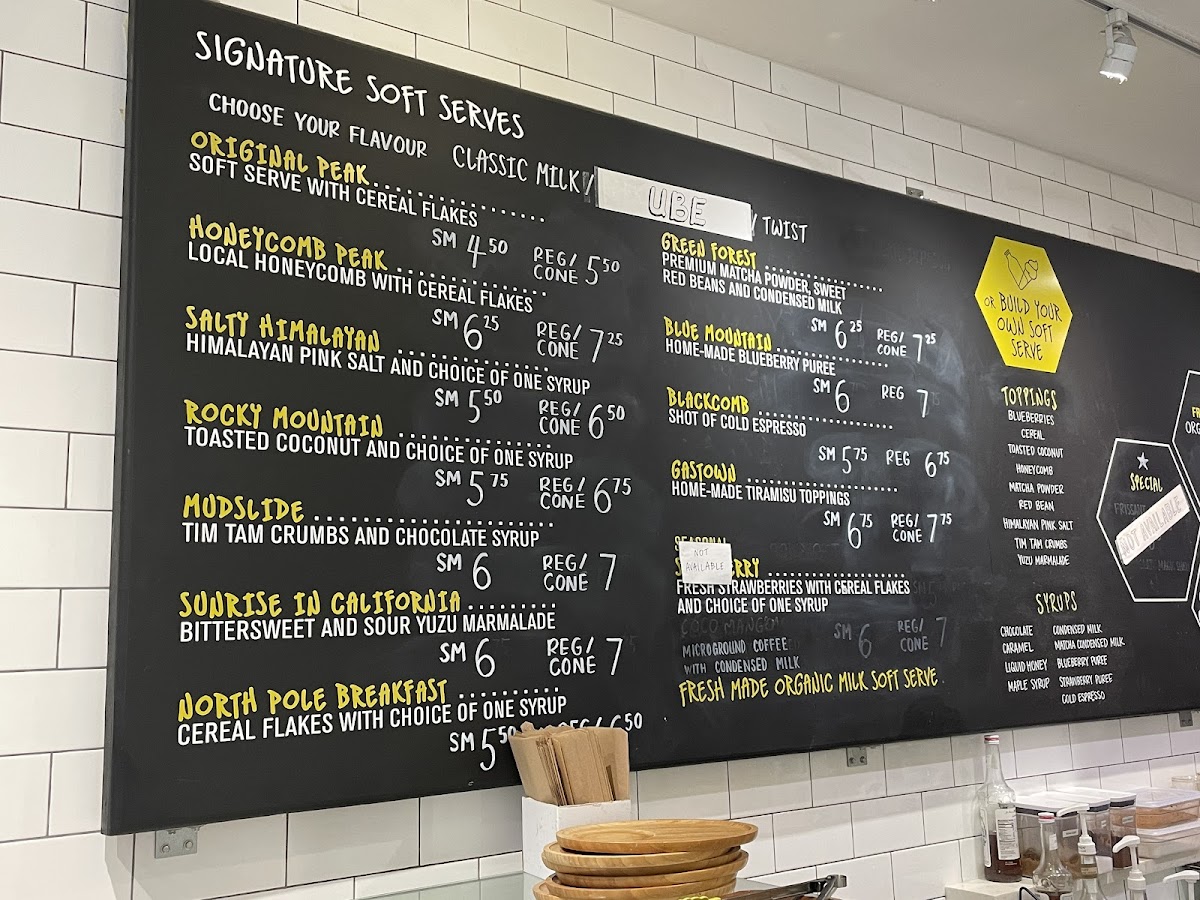 SIGNATURE SOFT SERVES
CHOOSE YOUR FLAVOUR CLASSIC MILK / UBE / TWIST
ORIGINAL PEAK
SOFT SERVE WITH CEREAL FLAKES
SM 4.50 REG/CONE 5.50
HONEYCOMB PEAK
LOCAL HONEYCOMB WITH CEREAL FLAKES
SM 6.25 REG/CONE 7.25
SALTY HIMALAYAN
HIMALAYAN PINK SALT AND CHOICE OF ONE SYRUP
SM 5.50 REG/CONE 6.50
ROCKY MOUNTAIN
TOASTED COCONUT AND CHOICE OF ONE SYRUP
SM 5.75 REG/CONE 6.75
MUDSLIDE
TIM TAM CRUMBS AND CHOCOLATE SYRUP
SM 6 REG/CONE 7
SUNRISE IN CALIFORNIA
BITTERSWEET AND SOUR YUZU MARMALADE
SM 6 REG/CONE 7
NORTH POLE BREAKFAST
CEREAL FLAKES WITH CHOICE OF ONE SYRUP
SM 5.50 REG/ 6.50
GREEN FOREST
PREMIUM MATCHA POWDER, SWEET
RED BEANS AND CONDENSED MILK
SM 6.25 REG/CONE 7.25
BLUE MOUNTAIN
HOME-MADE BLUEBERRY PUREE
SM 6 REG 7
BLACKCOMB
SHOT OF COLD ESPRESSO
SM 5.75 REG 6.75
GASTOWN
HOME-MADE TIRAMISU TOPPINGS
SM 6.75 REG/CONE 7.75
SEASONAL
NOT
AVAILABLE
FRESH STRAWBERRIES WITH CEREAL FLAKES
AND CHOICE OF ONE SYRUP
COCO MANGO
SM 6 REG/CONE 7
MICROGROUND COFFEE
WITH CONDENSED MILK
FRESH MADE ORGANIC MILK SOFT SERVE.
OR BUILD YOUR
OWN SOFT
SERVE
TOPPINGS
BLUEBERRIES
CEREAL
TOASTED COCONUT
HONEYCOMB
MATCHA POWDER
RED BEAN
HIMALAYAN PINK SALT
TIM TAM CRUMBS
YUZU MARMALADE
SYRUPS
CHOCOLATE
CARAMEL
LIQUID HONEY
MAPLE SYRUP
CONDENSED MILK
MATCHA CONDENSED MILK
BLUEBERRY PUREE
STRAWBERRY PUREE
COLD ESPRESSO
SPECIAL
NOT AVAILABLE